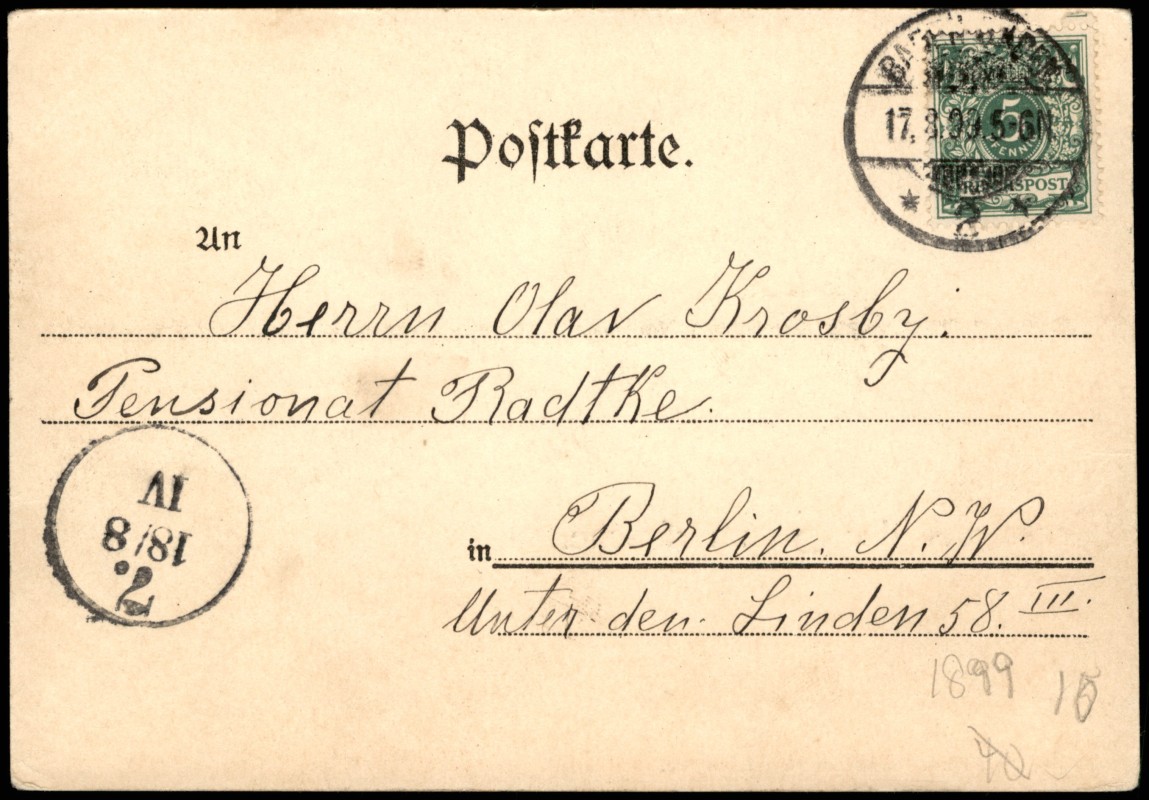 Postkarte.
17.8.99.5-6N
5
PFENNIG
REICHSPOST
* 2 *
An
Herrn Olav Krosby.
Pensionat Radtke.
IV
18/8
7.
in Berlin. N.W.
Unter den Linden 58. III.
1899
15